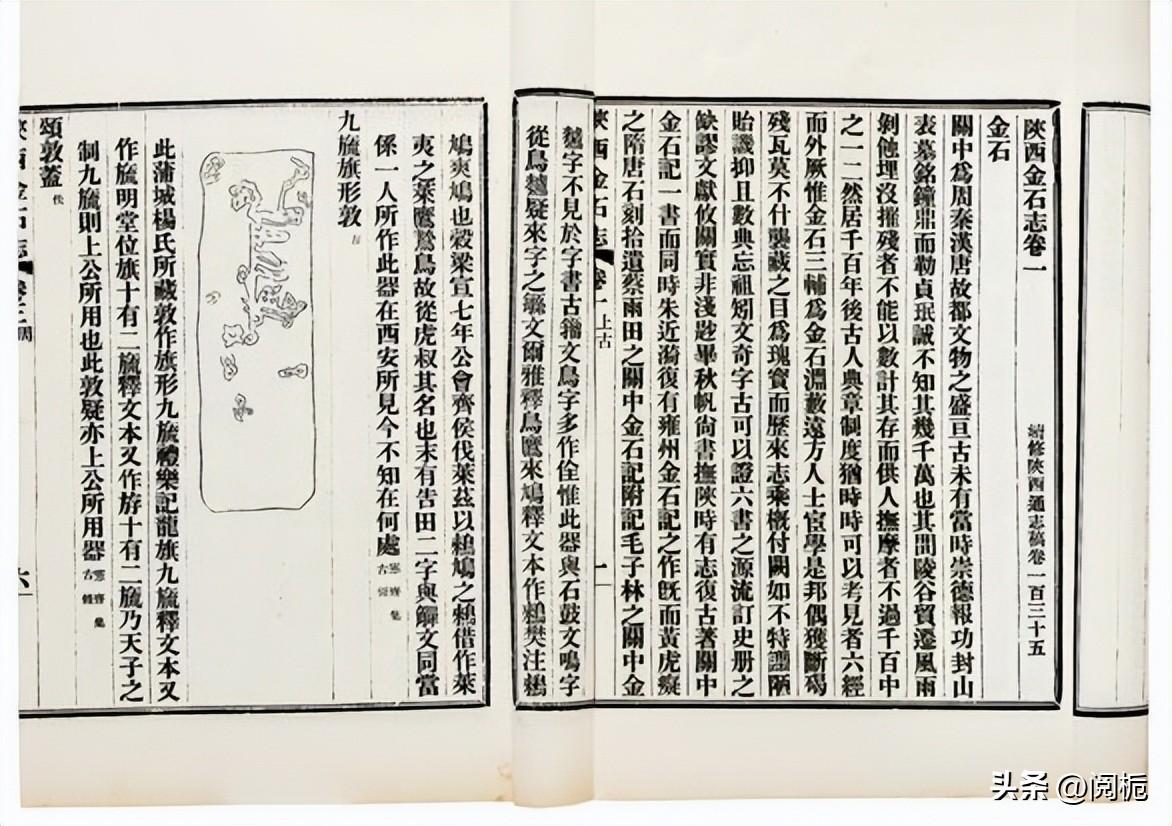 陝西金石志卷一
續修陝西通志稿卷一百三十五
金石
關中為周秦漢唐故都文物之盛亘古未有當時崇德報功封山
表墓銘鐘鼎而勒貞珉誠不知其幾千萬也其間陵谷貿遷風雨
剝蝕埋沒摧殘者不能以數計其存而供人撫摩者不過千百中
之一二然居千百年後古人典章制度猶時時可以考見者六經
而外厥惟金石三輔為金石淵藪遠方人士宦學是邦偶獲斷碣
殘瓦莫不什襲藏之目為瑰寶而歷來志乘概付闕如不特譾陋
貽譏抑且數典忘祖矧文奇字古可以證六書之源流訂史册之
缺謬文獻攸關實非淺尠畢秋帆尚書撫陝時有志復古著關中
金石記一書而同時朱近漪復有雍州金石記之作旣而黃虎癡
之隋唐石刻拾遺蔡雨田之關中金石記附記毛子林之關中金
陝西金石志 卷一 上古 一
字不見於字書古籀文鳥字多作隹惟此器與石鼓文鳴字
從鳥疑來字之緐文爾雅釋鳥鷹來鳩釋文本作鶆樊注鶆
鳩爽鳩也穀梁宣七年公會齊侯伐萊茲以鶆鳩之鶆借作萊
夷之萊鷹鷙鳥故從虎叔其名也末有告田二字與觶文同當
係一人所作此器在西安所見今不知在何處 愙齋集古錄
九旒旗形敦
此蒲城楊氏所藏敦作旗形九旒禮樂記龍旗九旒釋文本又
作旒明堂位旗十有二旒釋文本又作斿十有二旒乃天子之
制九旒則上公所用也此敦疑亦上公所用器 愙齋集古錄
頌敦蓋 佚
陝西金石志 六
頭条 @阅栀